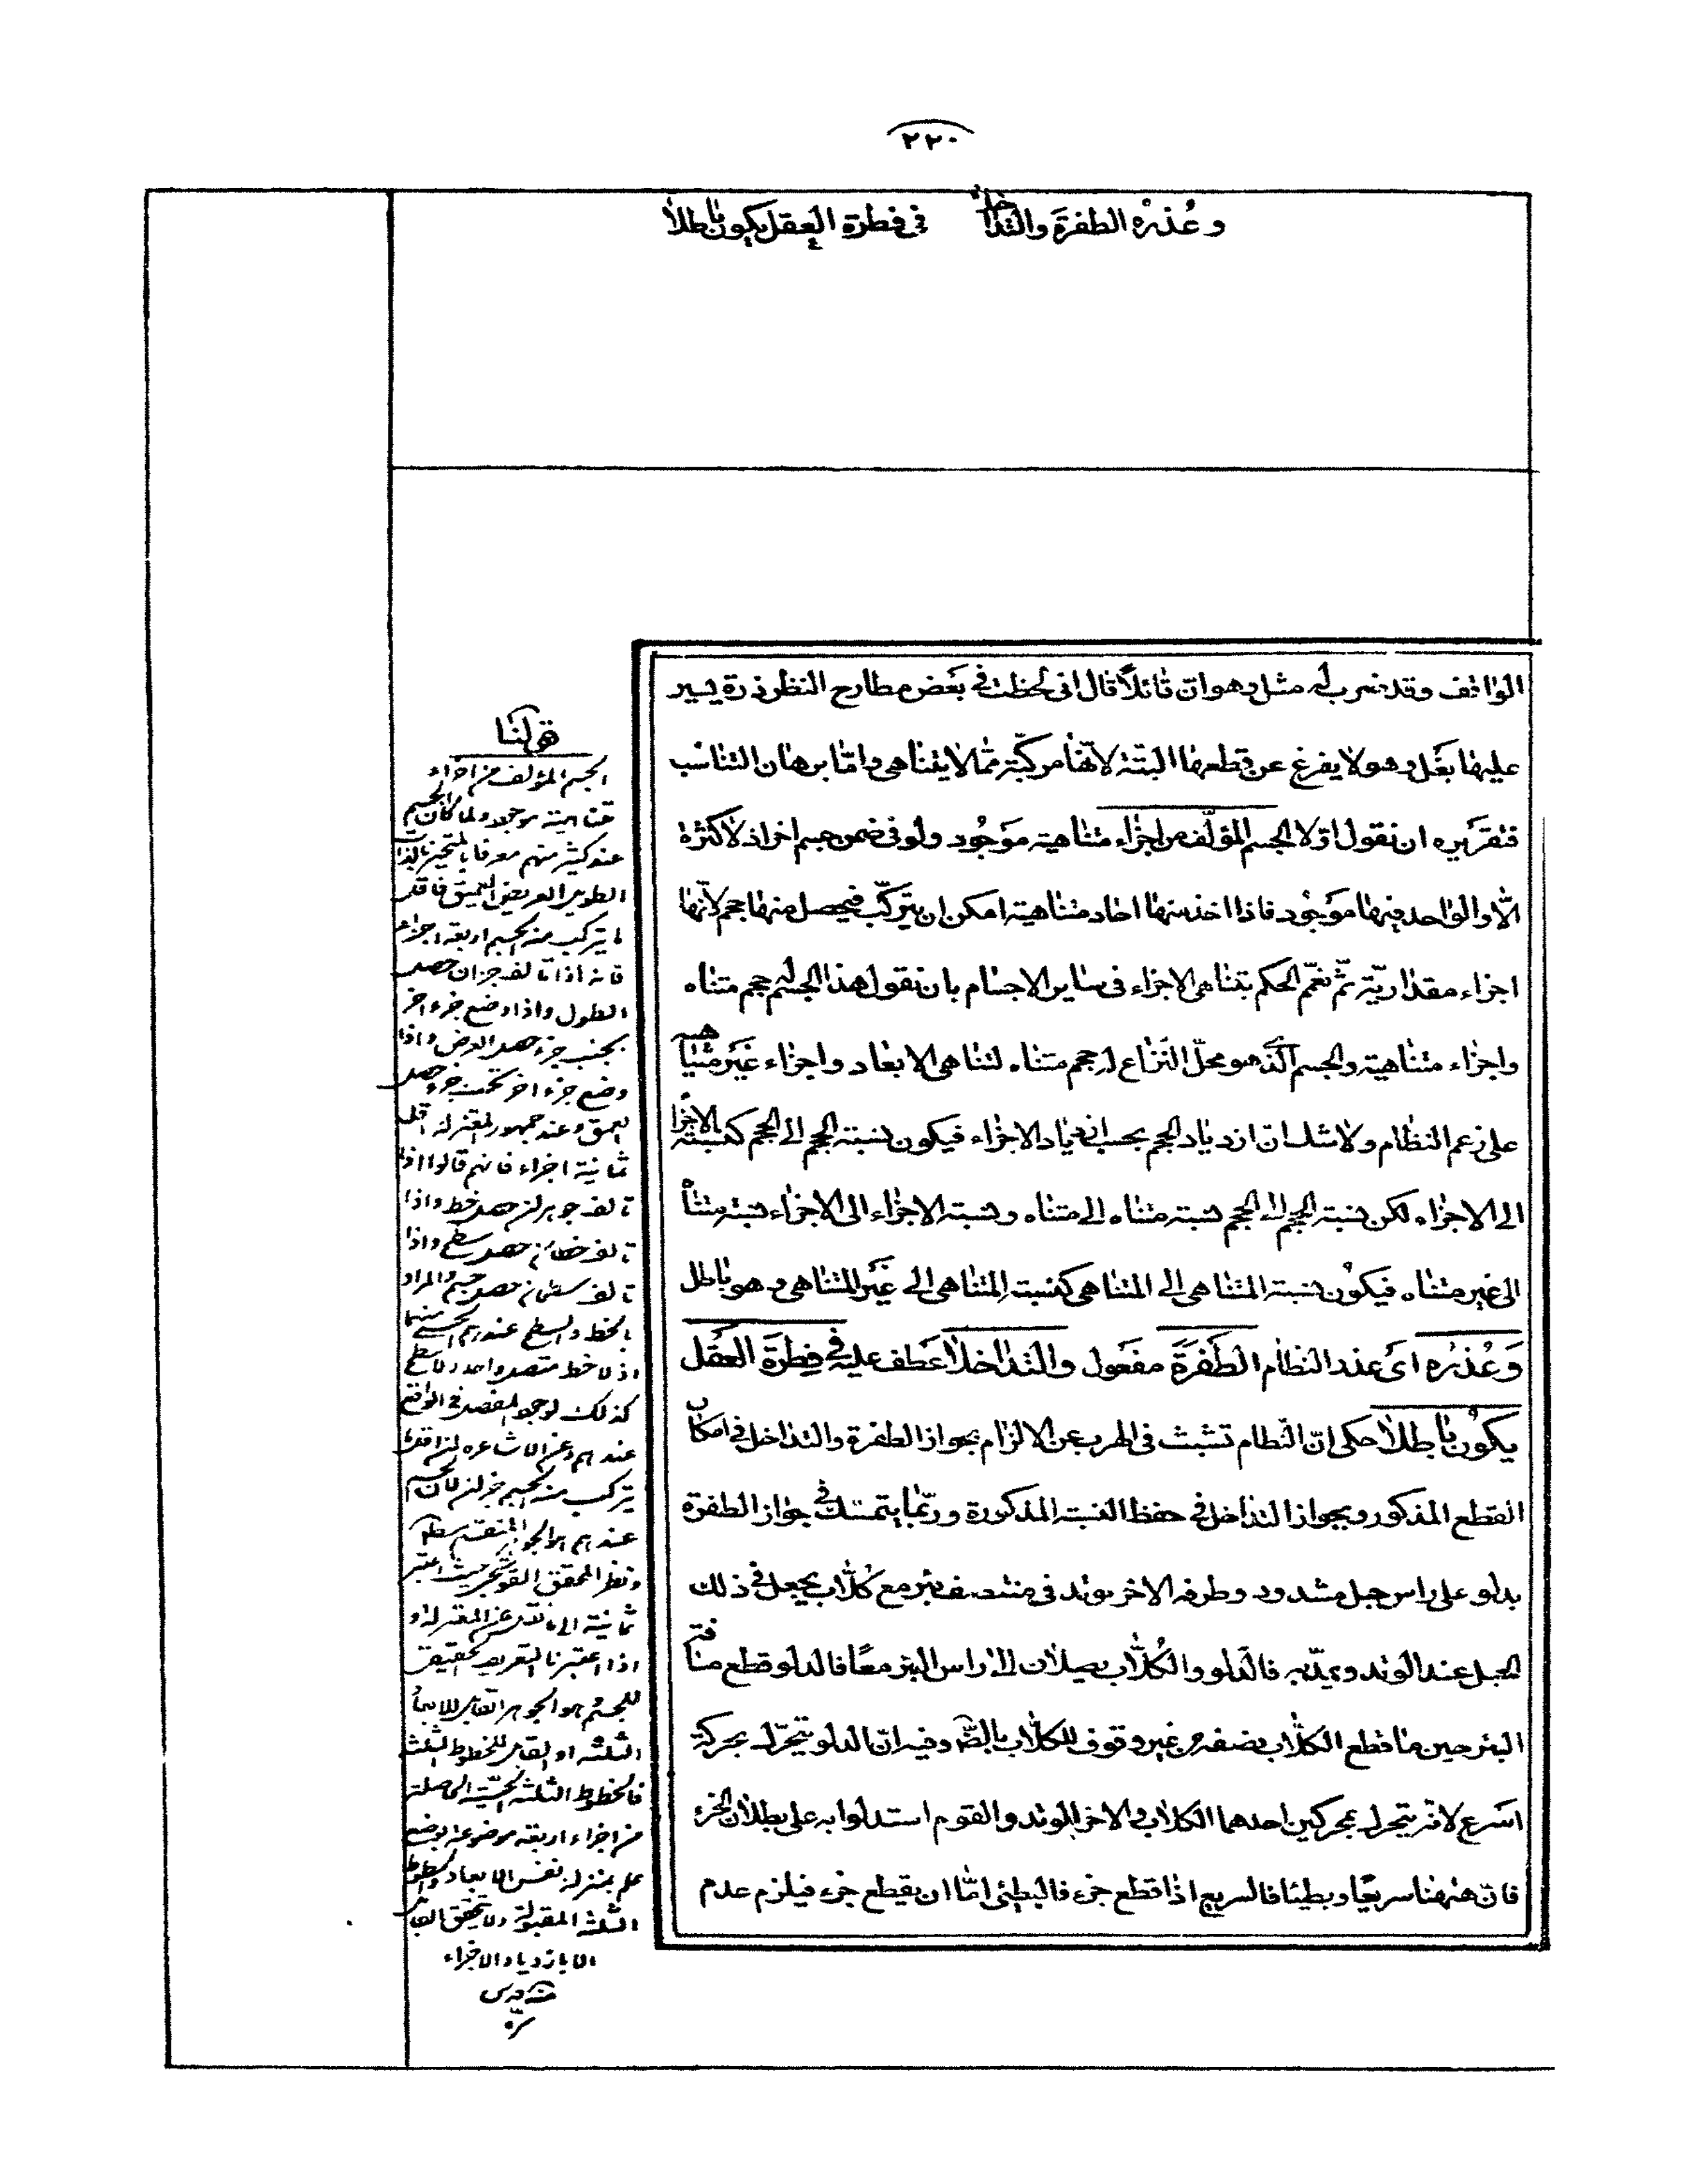 ٢٢٠
وعُذرُه الطفرةَ والتداخلا في فطرة العقل يكون باطلاً
الواقف وقد ضرب له مثل وهو ان قائلاً قال انى لحظت في بعض مطارح النظر ذرة يسير
عليها بغل وهو لا يفرغ عن قطعها البتّة لانّها مركّبة ممّا لا يتناهى وامّا برهان التناسب
فتقريره ان نقول اوّلا الجسم المؤلّف من اجزاء متناهية موجود ولو في ضمن جسم اخر اذ لا كثرة
الّا والواحد فيها موجود فاذا اخذ منها احاد متناهية امكن ان يتركّب فيحصل منها حجم لانّها
اجزاء مقداريّة ثمّ نعمّم الحكم بتناهى الاجزاء في ساير الاجسام بان نقول هذا الجسم له حجم متناه
واجزاء متناهية والجسم الّذى هو محلّ النزاع له حجم متناه لتناهى الابعاد واجزاء غير متناهية
على زعم النظام ولا شك ان ازدياد الحجم بحسب ازدياد الاجزاء فيكون نسبة الحجم الى الحجم كنسبة الاجزاء
الى الاجزاء لكن نسبة الحجم الى الحجم نسبة متناه الى متناه ونسبة الاجزاء الى الاجزاء نسبة متناه
الى غير متناه فيكون نسبة المتناهى الى المتناهى كنسبة المتناهى الى غير المتناهى وهو باطل
وَعُذرُه اى عند النظام الطفرةَ مفعول والتداخلا عطف عليه في فِطرَة العقل
يكون باطلاً حكى انّ النّظام تشبث في الهرب عن الالزام بجواز الطفرة والتداخل في امكان
القطع المذكور وبجواز التداخل في حفظ النسبة المذكورة وربّما يتمسّك في جواز الطفرة
بدلو على راس حبل مشدود وطرفه الاخر بوتد في منتصف بئر مع كُلّاب يجعل في ذلك
الحبل عند الوتد ويمدّ به فالدلو والكُلّاب يصلان الى راس البئر معًا فالدلو قطع مسافة
البئر حين ما قطع الكلّاب نصفه من غير وقوف للكلّاب بالضّرورة وفيه انّ الدلو يتحرّك بحركة
اسرع لانّه يتحرك بمحركين احدهما الكلاب والاخر الوتد والقوم استدلوا به على بطلان الجزء
فانّ ههنا سريعًا وبطيئا فالسريع اذا قطع جزء فالبطيئ امّا ان يقطع جزء فيلزم عدم
قولنا
الجسم المؤلف من اجزاء
متناهية موجود ولما كان الجسم
عند كثير منهم معرفا بالمتحيز بالذات
الطويل العريض العميق فاقل
ما يتركب منه الجسم اربعة اجزاء
فانه اذا تالف جزءان حصل
الطول واذا وضع جزء اخر
بجنب جزء حصل العرض واذا
وضع جزء اخر تحت جزء حصل
العمق وعند جمهور المعتزلة اقله
ثمانية اجزاء فانهم قالوا اذا
تالف جوهران حصل خط واذا
تالف خطان حصل سطح واذا
تالف سطحان حصل جسم والمراد
بالخط والسطح عندهم الحسى منهما
اذ لا خط متصل واحد ولا سطح
كذلك لوجود المفصل في الواقع
عندهم وعن الاشاعرة ان اقل ما
يتركب منه الجسم جزءان لان الجسم
عندهم هو الجوهر المنقسم مطلقا
ونظر المحقق القوشجى حيث اعتبر
ثمانية الى ما نقل عن المعتزلة و
اذا اعتبرنا التعريف الحقيقى
للجسم وهو الجوهر القابل للابعاد
الثلثة او القابل للخطوط الثلثة
فالخطوط الثلثة الحسّية الحاصلة
من اجزاء اربعة موضوعة بوضع
علم بمنزلة نفس الابعاد والخطوط
الثلثة المقبولة ولا يتحقق القابل
الا بازدياد الاجزاء
منه قدس
سرّه